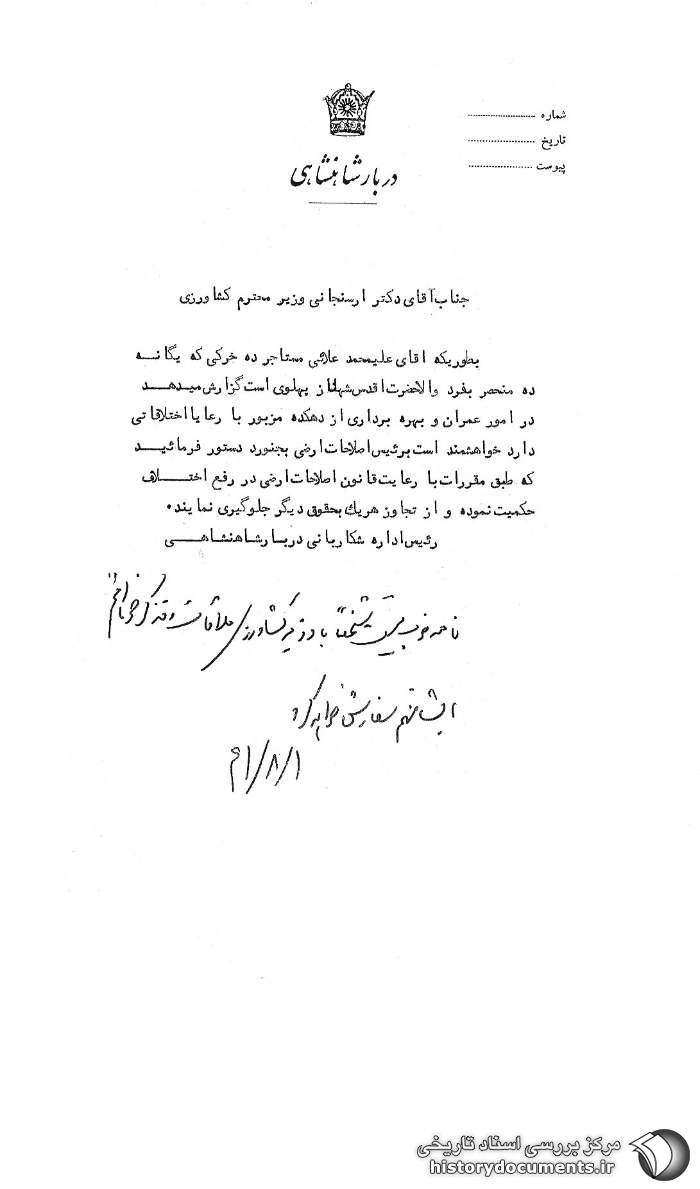 شماره ........................
تاریخ ........................
پیوست ......................
دربار شاهنشاهی
جناب آقای دکتر ارسنجانی وزیر محترم کشاورزی
بطوریکه اقای علیمحمد علائی مستاجر ده خرکی که یگانه
ده منحصر بفرد والاحضرت اقدس شهناز پهلوی است گزارش میدهد
در امور عمران و بهره برداری از دهکده مزبور با رعایا اختلافاتی
دارد خواهشمند است برئیس اصلاحات ارضی بجنورد دستور فرمائید
که طبق مقررات با رعایت قانون اصلاحات ارضی در رفع اختلاف
حکمیت نموده و از تجاوز هریك بحقوق دیگر جلوگیری نمایند.
رئیس اداره شکاربانی دربار شاهنشاهی
نامه خوب نیست شخصاً با وزیر کشاورزی ملاقات و مذاکره خواهم
ایشانهم سفارش خواهد کرد
۴۱/۸/۱
مرکز بررسی اسناد تاریخی
historydocuments.ir